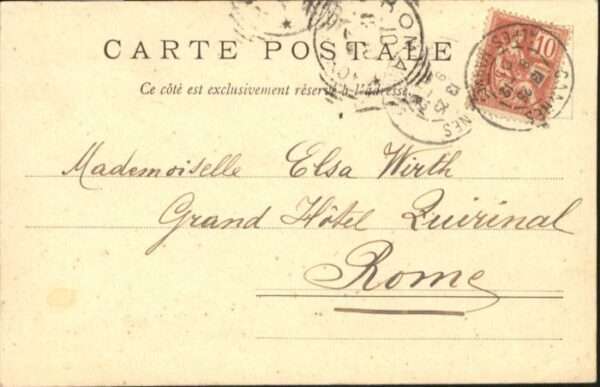 CARTE POSTALE
Ce côté est exclusivement réservé à l'adresse
Mademoiselle Elsa Wirth
Grand Hôtel Quirinal
Rome
10
CANNES
ROMA